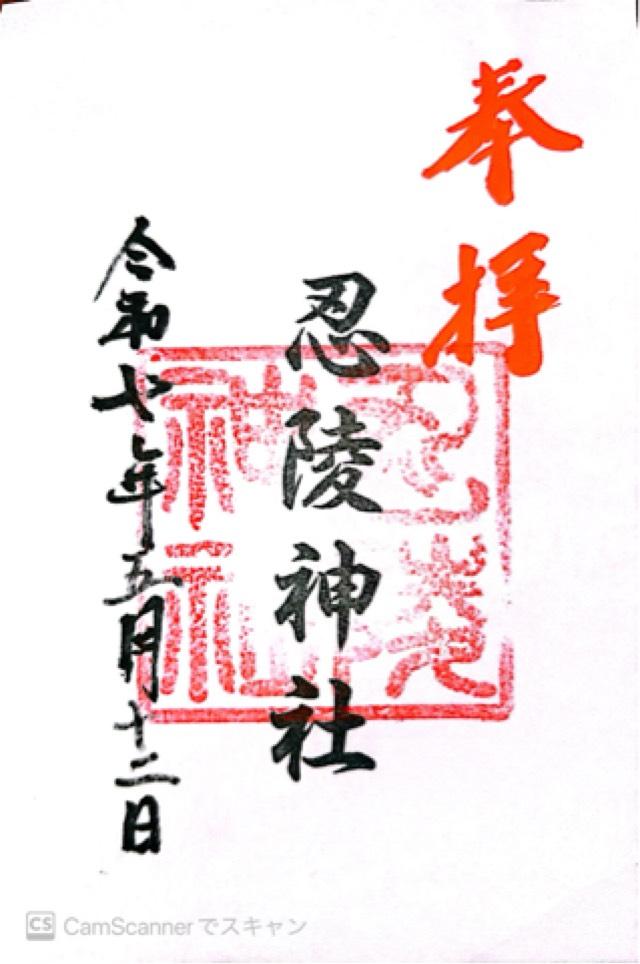 奉拝
忍陵神社
忍陵神社
令和七年五月十二日
CS CamScannerでスキャン